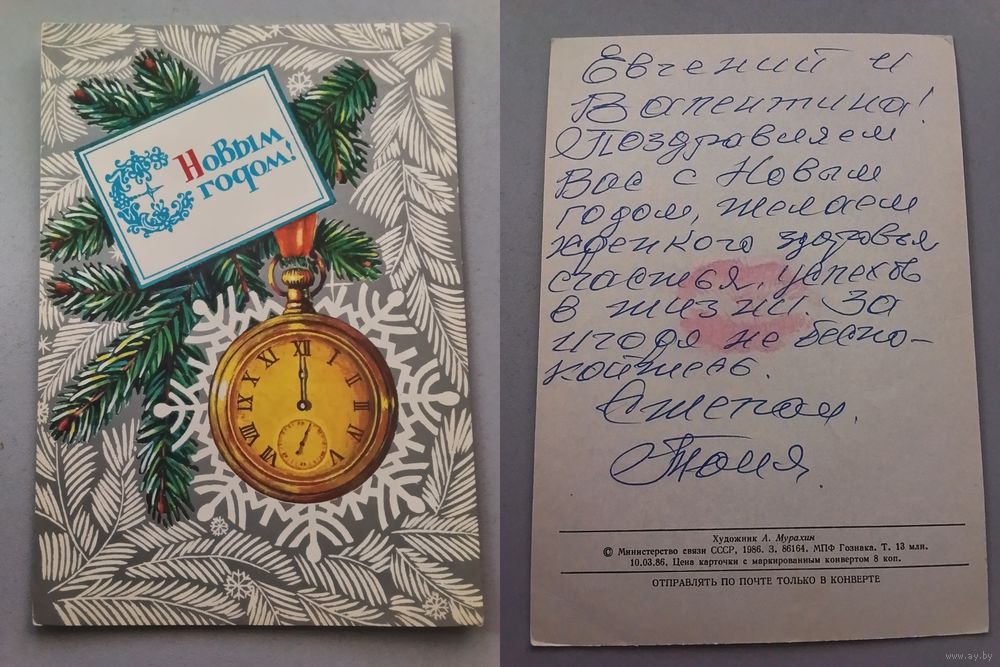 С Новым
годом!
XII I II III IIII V VII VIII IX X XI
Евгений и
Валентина!
Поздравляем
Вас с Новым
годом, желаем
крепкого здоровья
счастья, успехов
в жизни. За
не беспо-
койтесь.
Степан,
Толя.
Художник А. Мурахин
© Министерство связи СССР, 1986. З. 86164. МПФ Гознака. Т. 13 млн.
10.03.86. Цена карточки с маркированным конвертом 8 коп.
ОТПРАВЛЯТЬ ПО ПОЧТЕ ТОЛЬКО В КОНВЕРТЕ
www.ay.by